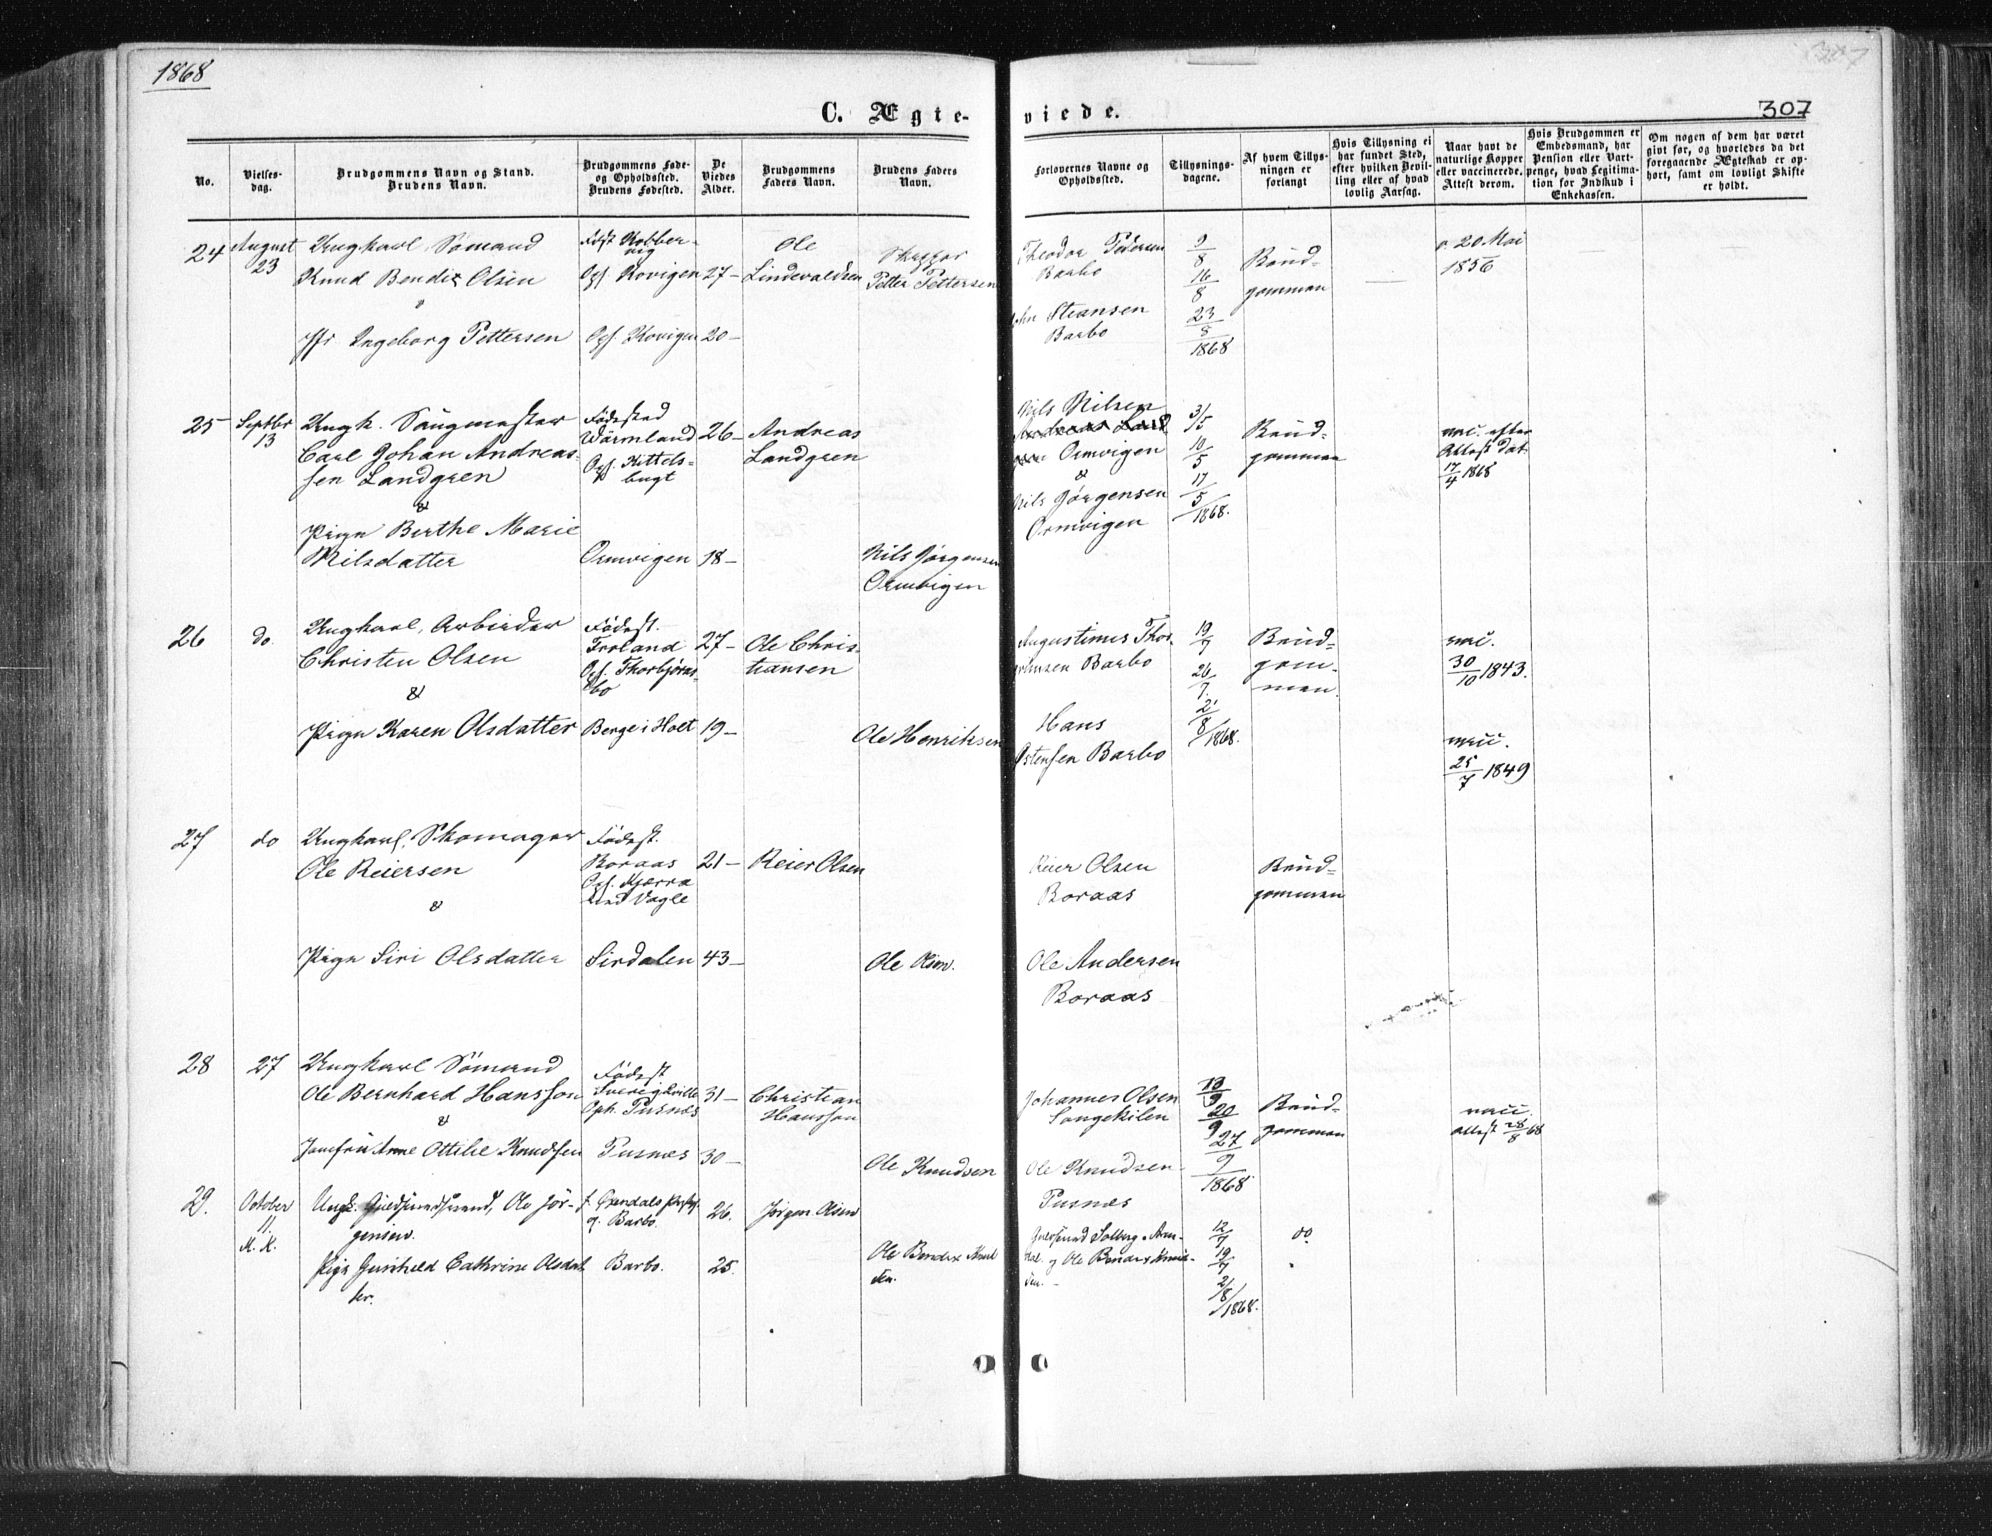 1868
307
C. Ægte-
viede.
No.
Vielses-
dag.
Brudgommens Navn og Stand.
Brudens Navn.
Brudgommens Føde-
og Opholdssted.
Brudens Fødested.
De
Viedes
Alder.
Brudgommens
Faders Navn.
Brudens Faders
Navn.
Forlovernes Navne og
Opholdssted.
Tillysnings-
dagene.
Af hvem Tillys-
ningen er
forlangt
Hvis Tillysning ei
har fundet Sted,
efter hvilken Bevil-
ling eller af hvad
lovlig Aarsag.
Naar havt de
naturlige Kopper
eller vaccinerede.
Attest derom.
Hvis Brudgommen er
Embedsmand, har
Pension eller Vart-
penge, hvad Legitima-
tion for Indskud i
Enkekassen.
Om nogen af dem har været
givt før, og hvorledes da det
foregaaende Ægteskab er op-
hørt, samt om lovligt Skifte
er holdt.
24 August
23
Ungkarl, Sömand
Knud Bendix Olsen
Jfr. Ingeborg Pettersen
Födst Kobber-
vig
Oph. Kovigen 27 –
Oph. Kovigen 20 –
Ole
Lindevaldsen
Skipper
Petter Pettersen
Theodor Pedersen
Barbo
John Steansen
Barbo
9/8
16/8
23/8
1868
Brud-
gommen
v. 20 Mai
1856
25 Septbr
13
Ungk. Saugmester
Carl Johan Andreas-
sen Landgren
&
Pigen Berthe Marie
Nilsdatter
Födested
Wärmland
Oph. Kittels-
bugt
26 –
Ormvigen 18 –
Andreas
Landgren
Nils Jørgensen
Ormvigen
Nils Nilsen
Ormvigen
&
Nils Jørgensen
Ormvigen
3/5
10/5
17/5
1868.
Brud-
gommen
vacc. efter
Attest dat.
17/4 1868
26 do.
Ungkarl, Arbeider
Christen Olsen
&
Pigen Karen Olsdatter
Födest.
Froland
Oph. Thorbjørns-
bo
27 –
Berge i Holt 19 –
Ole Chris-
tiansen
Ole Henriksen
Augustinus Thor-
Barbo
Hans
Ostensen Barbo
19/7
26/7.
2/8
1868.
Brud-
gom-
men.
vacc.
30/10 1843.
vacc.
25/7 1849
27 do
Ungkarl, Skomager
Ole Reiersen
&
Pigen Siri Olsdatter
Födest.
Boraas
Oph. Kjerra
ved Vagle
21 –
Sirdalen 43 –
Reier Olsen
Ole Olsen.
Reier Olsen
Boraas
Ole Andersen
Boraas
Brud-
gommen
28 27
Ungkarl Sömand
Ole Bernhard Hansson
&
Jomfru Anne Ottilie Knudsen
Födest
Oph. Pusnæs
31 –
Pusnæs 30 –
Christian
Hansson
Ole Knudsen
Johannes Olsen
Songekilen
Ole Knudsen
Pusnæs
13/9
20/9
27/9
1868
Brud-
gommen
vacc.
attest 28/8 68
29. October
11.
Ungk. Ole Jör-
gensen.
Pige Gunhild Cathrine Olsdat
ter.
Barbo.
Barbo.
26.
25.
Jörgen Olsen
Ole Bendix Knud
sen.
Solberg Aren-
dal og Ole Bendix Knud-
sen.
12/7
19/7
2/8
1868.
do